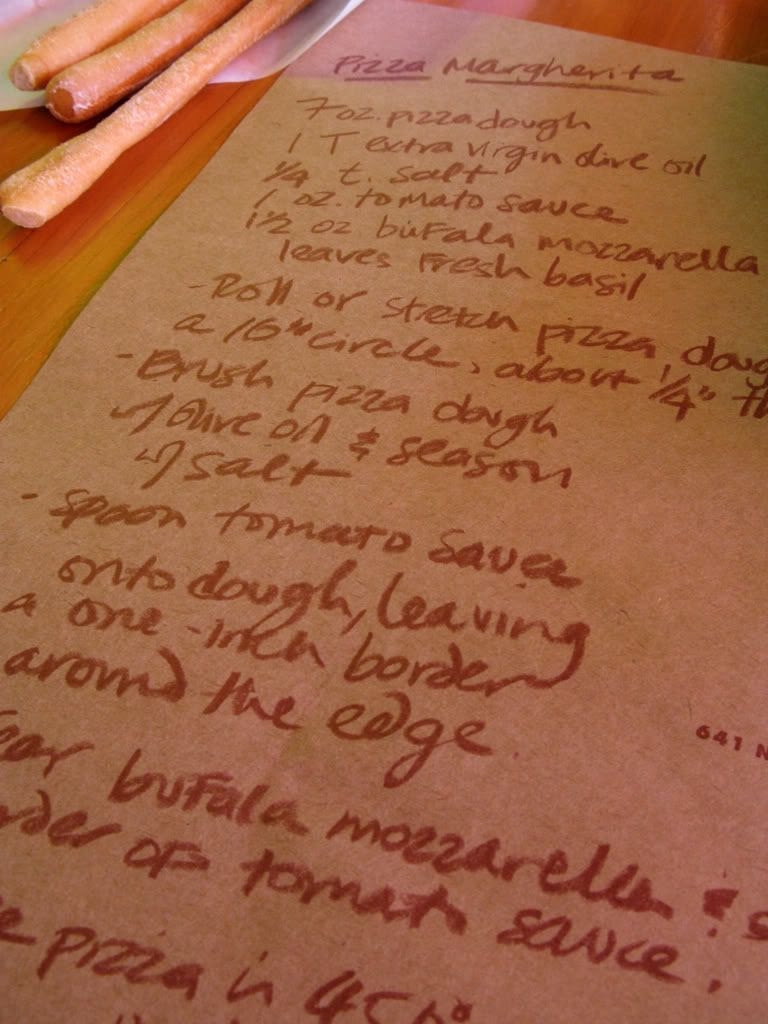 Pizza Margherita
7 oz. pizza dough
1 T extra virgin olive oil
1/4 t. salt
1 oz. tomato sauce
1 1/2 oz bufala mozzarella
leaves Fresh basil
- Roll or stretch pizza, doug
a 16" circle, about 1/4" th
- Brush pizza dough
w/ olive oil & season
w/ salt
- spoon tomato sauce
onto dough, leaving
a one-inch border
around the edge.
641 N
ear bufala mozzarella & s
rder of tomato sauce.
e pizza in 450°